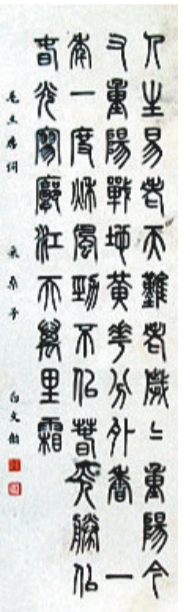 人生易老天難老歲〻重陽今
又重陽戰地黃花分外香一
年一度秋風勁不似春光勝似
春光寥廓江天萬里霜
毛主席詞 采桑子 白文